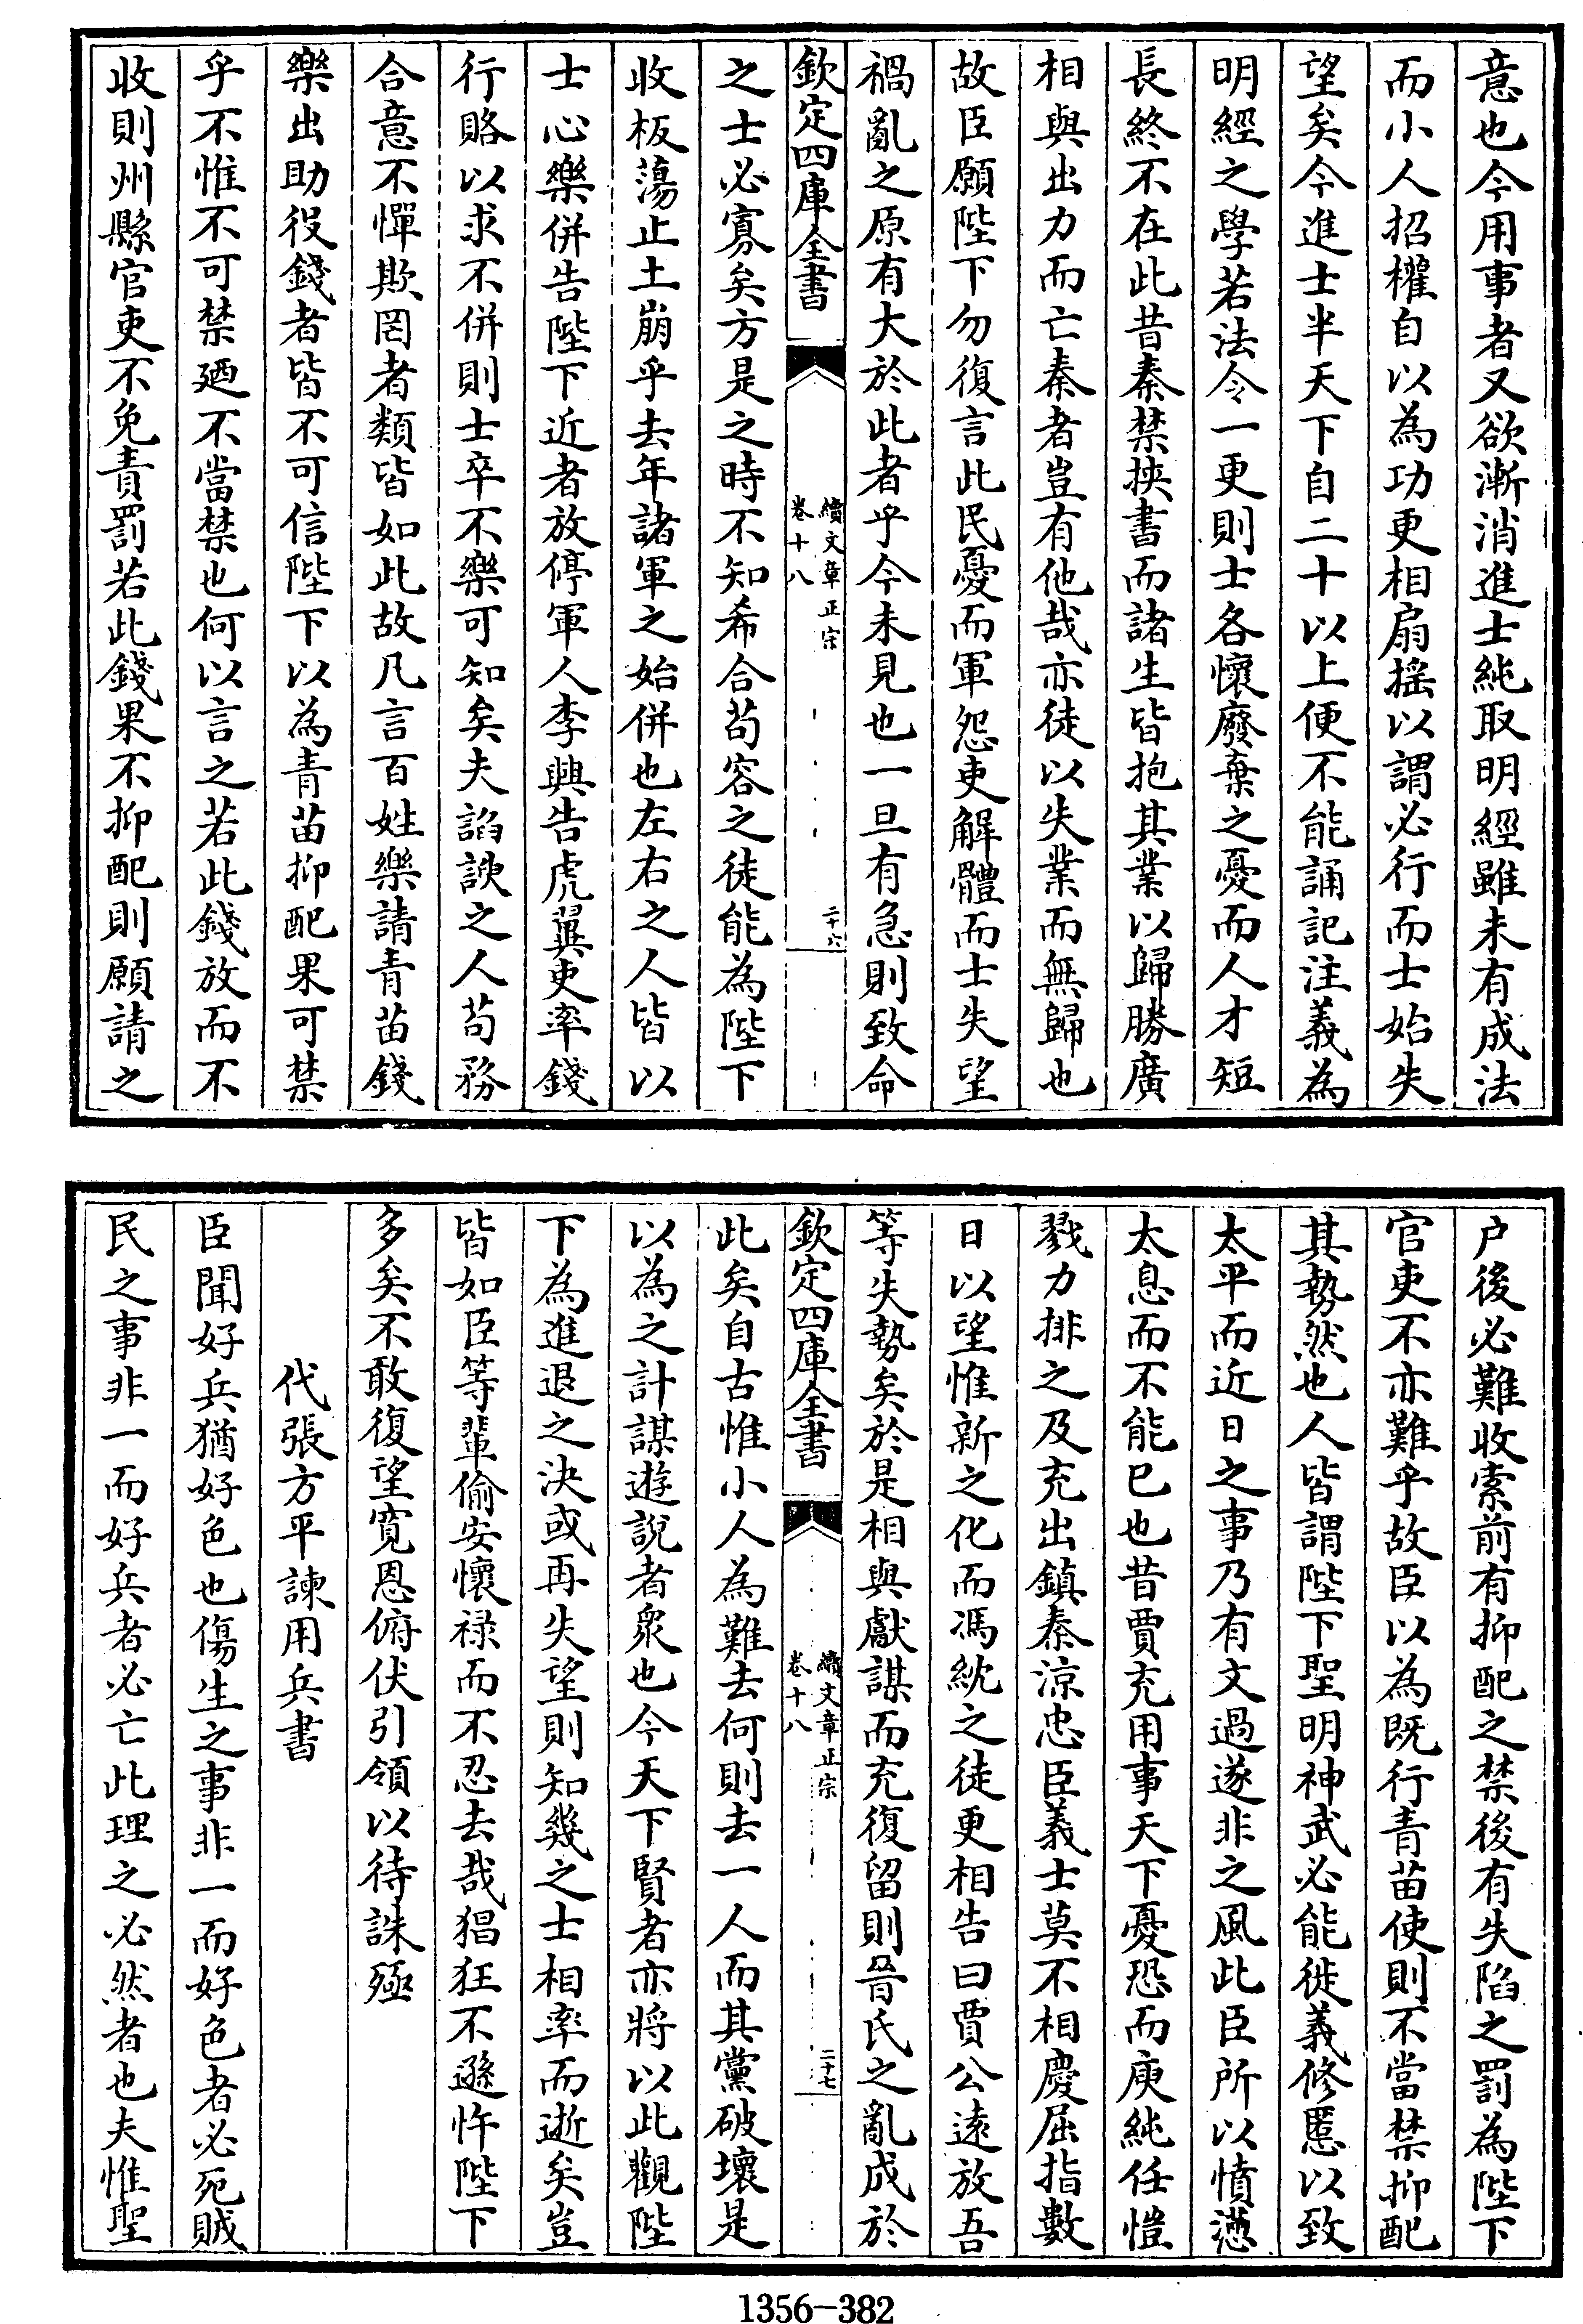 意也今用事者又欲漸消進士純取明經雖未有成法
而小人招權自以為功更相扇搖以謂必行而士始失
望矣今進士半天下自二十以上便不能誦記注義為
明經之學若法令一更則士各懷廢棄之憂而人才短
長終不在此昔秦禁挾書而諸生皆抱其業以歸勝廣
相與出力而亡秦者豈有他哉亦徒以失業而無歸也
故臣願陛下勿復言此民憂而軍怨吏解體而士失望
禍亂之原有大於此者乎今未見也一旦有急則致命
欽定四庫全書
續文章正宗
卷十八
二十六
之士必寡矣方是之時不知希合苟容之徒能為陛下
收板蕩止土崩乎去年諸軍之始併也左右之人皆以
士心樂併告陛下近者放停軍人李興告虎翼吏率錢
行賂以求不併則士卒不樂可知矣夫諂諛之人苟務
合意不憚欺罔者類皆如此故凡言百姓樂請青苗錢
樂出助役錢者皆不可信陛下以為青苗抑配果可禁
乎不惟不可禁廼不當禁也何以言之若此錢放而不
收則州縣官吏不免責罰若此錢果不抑配則願請之
户後必難收索前有抑配之禁後有失陷之罰為陛下
官吏不亦難乎故臣以為既行青苗使則不當禁抑配
其勢然也人皆謂陛下聖明神武必能徙義修慝以致
太平而近日之事乃有文過遂非之風此臣所以憤懣
太息而不能已也昔賈充用事天下憂恐而庾純任愷
戮力排之及充出鎮秦涼忠臣義士莫不相慶屈指數
日以望惟新之化而馮紞之徒更相告曰賈公遠放吾
等失勢矣於是相與獻謀而充復留則晉氏之亂成於
欽定四庫全書
續文章正宗
卷十八
二十七
此矣自古惟小人為難去何則去一人而其黨破壞是
以為之計謀遊說者衆也今天下賢者亦將以此觀陛
下為進退之決或再失望則知幾之士相率而逝矣豈
皆如臣等輩偷安懷祿而不忍去哉猖狂不遜忤陛下
多矣不敢復望寛恩俯伏引領以待誅殛
代張方平諫用兵書
臣聞好兵猶好色也傷生之事非一而好色者必死賊
民之事非一而好兵者必亡此理之必然者也夫惟聖
1356-382